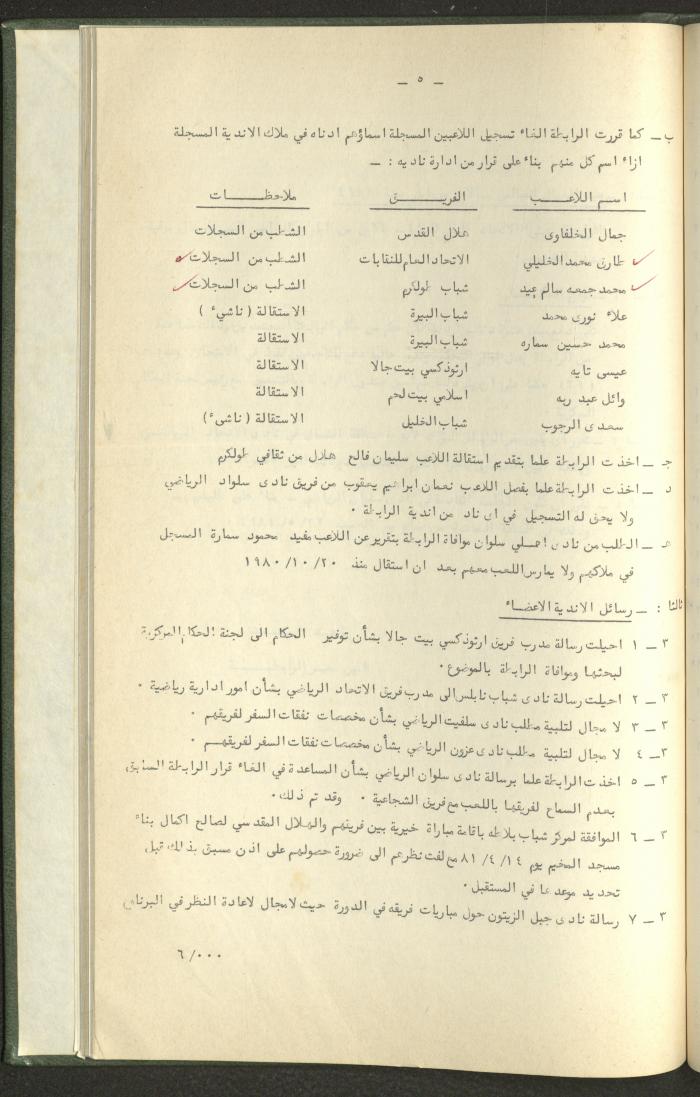 — ٥ —
ب — كما قررت الرابطة الغاء تسجيل اللاعبين المسجلة اسماؤهم ادناه في ملاك الاندية المسجلة
ازاء اسم كل منهم بناء على قرار من ادارة ناديه : —
اسم اللاعب الفريق ملاحظات
جمال الخلفاوى هلال القدس الشطب من السجلات
طارق محمد الخليلي الاتحاد العام للنقابات الشطب من السجلات
محمد جمعه سالم عيد شباب طولكرم الشطب من السجلات
علاء نورى محمد شباب البيرة الاستقالة ( ناشىء )
محمد حسين سماره شباب البيرة الاستقالة
عيسى تايه ارثوذكسي بيت جالا الاستقالة
وائل عبد ربه اسلامي بيت لحم الاستقالة
سعدى الرجوب شباب الخليل الاستقالة ( ناشىء )
جـ — اخذت الرابطة علما بتقديم استقالة اللاعب سليمان فالح هلال من ثقافي طولكرم
د — اخذت الرابطة علما بفصل اللاعب نعمان ابراهيم يعقوب من فريق نادى سلواد الرياضي
ولا يحق له التسجيل في اى ناد من اندية الرابطة .
هـ — الطلب من نادى اهلي سلوان موافاة الرابطة بتقرير عن اللاعب مفيد محمود سمارة المسجل
في ملاكهم ولا يمارس اللعب معهم بعد ان استقال منذ ٢٠/ ١٠/ ١٩٨٠
ثالثا : — رسائل الاندية الاعضاء
٣ — ١ احيلت رسالة مدرب فريق ارثوذكسي بيت جالا بشأن توفير الحكام الى لجنة الحكام المركزية
لبحثها وموافاة الرابطة بالموضوع .
٣ — ٢ احيلت رسالة نادى شباب نابلس الى مدرب فريق الاتحاد الرياضي بشأن امور ادارية رياضية .
٣ — ٣ لا مجال لتلبية مطلب نادى سلفيت الرياضي بشأن مخصصات نفقات السفر لفريقهم .
٣ — ٤ لا مجال لتلبية مطلب نادى عزون الرياضي بشأن مخصصات نفقات السفر لفريقهم .
٣ — ٥ اخذت الرابطة علما برسالة نادى سلوان الرياضي بشأن المساعدة في الغاء قرار الرابطة السابق
بعدم السماح لفريقها باللعب مع فريق الشجاعية . وقد تم ذلك .
٣ — ٦ الموافقة لمركز شباب بلاطه باقامة مباراة خيرية بين فريقهم والهلال المقدسي لصالح اكمال بناء
مسجد المخيم يوم ١٤/ ٤/ ٨١ مع لفت نظرهم الى ضرورة حصولهم على اذن مسبق بذلك قبل
تحديد موعدها في المستقبل .
٣ — ٧ رسالة نادى جبل الزيتون حول مباريات فريقه في الدورة حيث لامجال لاعادة النظر في
٦/٠٠٠